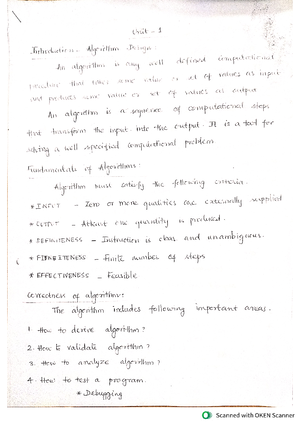 Unit - I
Introduction - Algorithm Design:
An algorithm is any well defined computational
procedure that takes some value or set of values as input
and produces some value or set of values as output.
An algorithm is a sequence of computational steps
that transform the input into the output. It is a tool for
solving a well specified computational problem.
Fundamentals of Algorithms:
Algorithm must satisfy the following criteria.
* INPUT - Zero or more quantities are externally supplied
* OUTPUT - Atleast one quantity is produced.
* DEFINITENESS - Instruction is clear and unambiguous.
* FINITENESS - Finite number of steps
* EFFECTIVENESS - Feasible
Correctness of algorithm:
The algorithm includes following important areas.
1. How to derive algorithm?
2. How to validate algorithm?
3. How to analyze algorithm?
4. How to test a program.
* Debugging
Scanned with OKEN Scanner